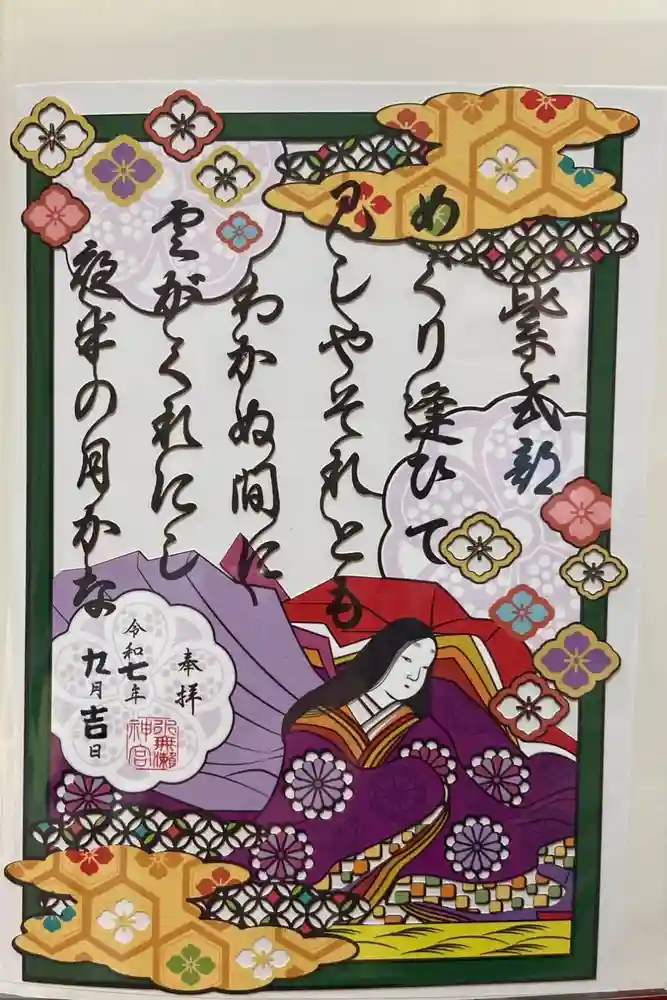 紫式部
めくり逢ひて
見しやそれとも
わかぬ間に
雲がくれにし
夜半の月かな
奉拝
令和七年
九月吉日
水無瀬
神宮